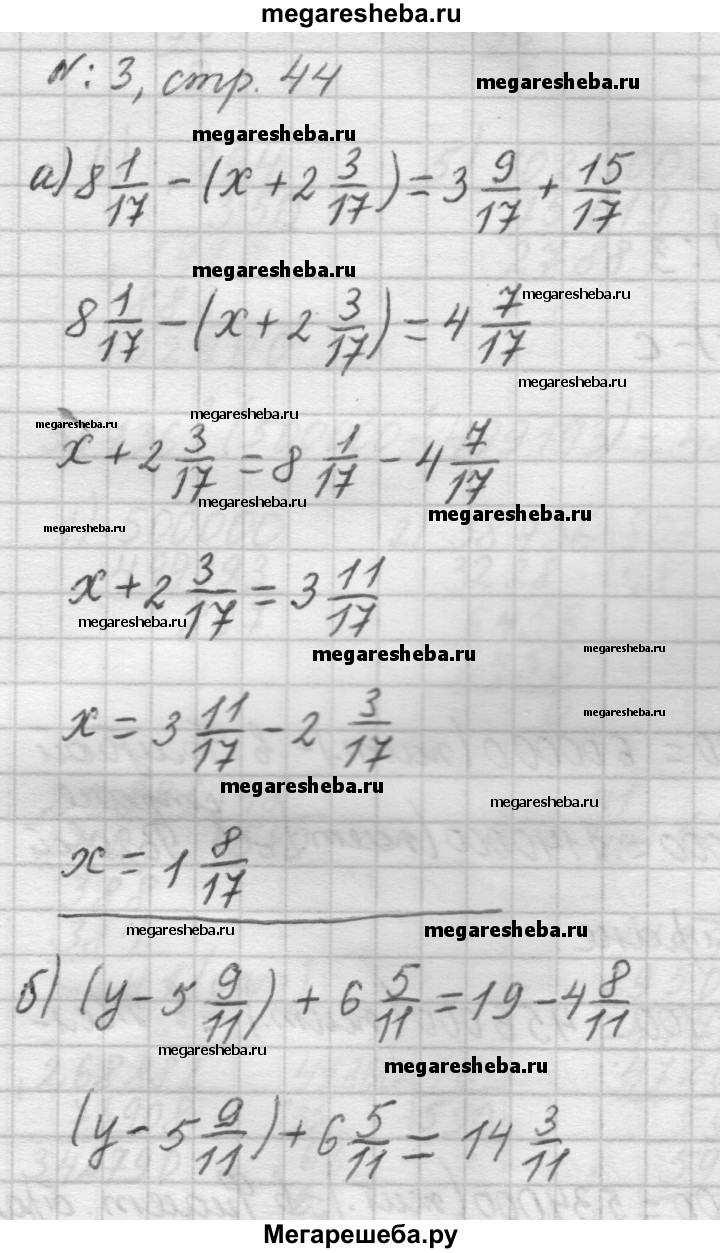 megaresheba.ru
N: 3, стр. 44
megaresheba.ru
megaresheba.ru
а) 8 1/17 - (x + 2 3/17) = 3 9/17 + 15/17
megaresheba.ru
megaresheba.ru
8 1/17 - (x + 2 3/17) = 4 7/17
megaresheba.ru
megaresheba.ru
megaresheba.ru
x + 2 3/17 = 8 1/17 - 4 7/17
megaresheba.ru
megaresheba.ru
megaresheba.ru
x + 2 3/17 = 3 11/17
megaresheba.ru
megaresheba.ru
megaresheba.ru
x = 3 11/17 - 2 3/17
megaresheba.ru
megaresheba.ru
megaresheba.ru
x = 1 8/17
megaresheba.ru
megaresheba.ru
б) (y - 5 9/11) + 6 5/11 = 19 - 4 8/11
megaresheba.ru
megaresheba.ru
(y - 5 9/11) + 6 5/11 = 14 3/11
Мегарешеба.ру